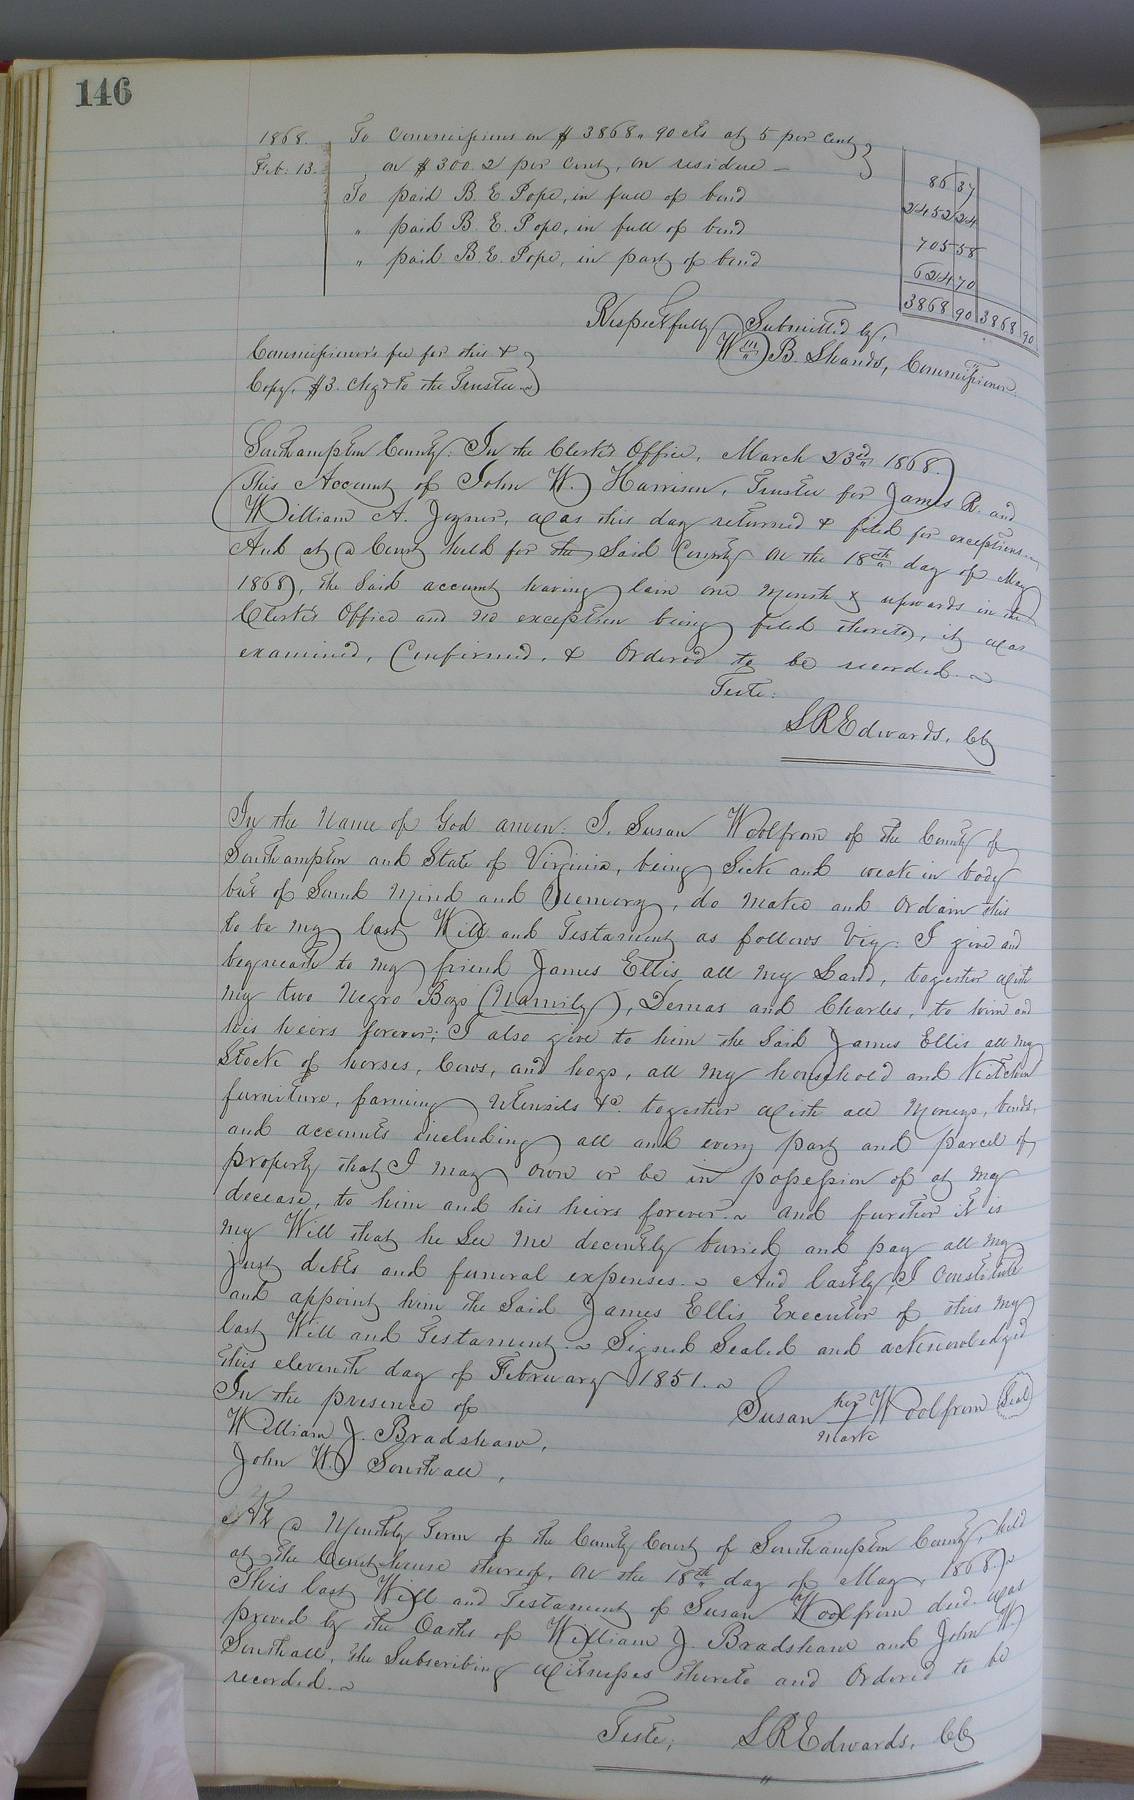 146
1868. To Commissions on $3868,, 90 cts at 5 per cent
Feb: 13. on $300. 2 per cent, on residue — 86 37
To paid B. E. Pope, in full of bond 2452 24
" paid B. E. Pope, in full of bond 705 58
" paid B. E. Pope, in part of bond 624 70
3868 90 3868 90
Respectfully Submitted by,
Wm B. Shands, Commissioner.
Commissioner's fee for this &
Copy, $3. chgd to the Trustee
Southampton County: In the Clerk's Office, March 23rd 1868.
This Account of John W. Harrison, Trustee for James R. and
William A. Joyner, was this day returned & filed for exceptions.
And at a Court held for the Said County on the 18th day of May
1868, the Said account having lain one Month & upwards in the
Clerk's Office and no exception being filed thereto, it was
examined, Confirmed, & Ordered to be recorded.
Teste:
S R Edwards, CC
In the Name of God amen: I, Susan Woolfrom of the County of
Southampton and State of Virginia, being Sick and weak in body
but of Sound Mind and Memory, do make and Ordain this
to be my last Will and Testament as follows Viz: I give and
bequeath to my friend James Ellis all my Land, together with
my two Negro Boys (Namily), Demas and Charles, to him and
his heirs forever; I also give to him the Said James Ellis all my
Stock of horses, Cows, and hogs, all my household and Kitchen
furniture, farming Utensils &c. together with all Moneys, bonds,
and accounts including all and every part and parcel of
property that I may own or be in possession of at my
decease, to him and his heirs forever. and further it is
my Will that he See me decently buried and pay all my
just debts and funeral expenses. And lastly, I Constitute
and appoint him the Said James Ellis Executor of this my
last Will and Testament. Signed Sealed and acknowledged
this eleventh day of February 1851.
In the presence of Susan her Woolfrom (Seal)
mark
William J. Bradshaw,
John W. Southall,
At a Monthly Term of the County Court of Southampton County, held
at the Court-house thereof, on the 18th day of May, 1868.
This last Will and Testament of Susan Woolfrom decd. was
proved by the Oaths of William J. Bradshaw and John W.
Southall, the Subscribing witnesses thereto and Ordered to be
recorded.
Teste, S R Edwards, CC